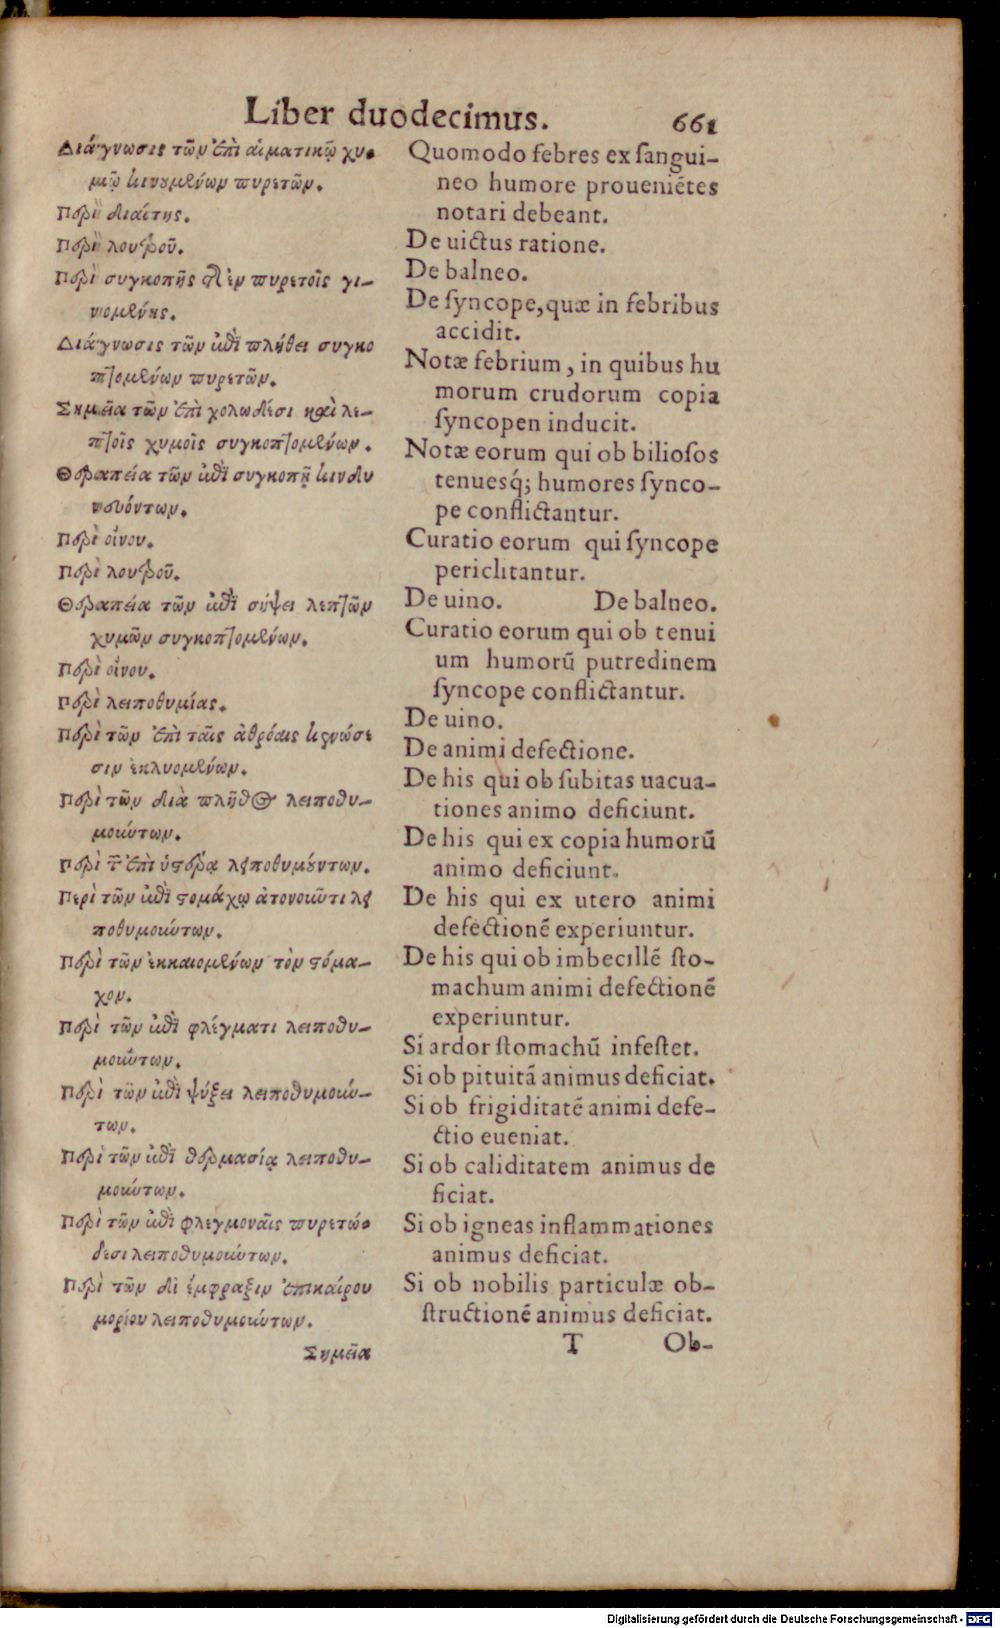 Liber duodecimus. 661
Διάγνωσις τῶν ἐπὶ αἱματικῷ χυ-
μῷ κινουμένων πυρετῶν.
Περὶ διαίτης.
Περὶ λουτροῦ.
Περὶ συγκοπῆς τῆς ἐν πυρετοῖς γι-
νομένης.
Διάγνωσις τῶν ἐπὶ πλήθει συγκο
πτομένων πυρετῶν.
Σημεῖα τῶν ἐπὶ χολώδεσι καὶ λε-
πτοῖς χυμοῖς συγκοπτομένων.
Θεραπεία τῶν ἐπὶ συγκοπῇ κινδυ
νευόντων.
Περὶ οἴνου.
Περὶ λουτροῦ.
Θεραπεία τῶν ἐπὶ σήψει λεπτῶν
χυμῶν συγκοπτομένων.
Περὶ οἴνου.
Περὶ λειποθυμίας.
Περὶ τῶν ἐπὶ ταῖς ἀθρόαις κενώσε
σιν ἐκλυομένων.
Περὶ τῶν διὰ πλῆθος λειποθυ-
μούντων.
Περὶ τῶν ἐπὶ ὑστέρᾳ λειποθυμούντων.
Περὶ τῶν ἐπὶ στομάχῳ ἀτονοῦντι λει
ποθυμούντων.
Περὶ τῶν ἐκκαιομένων τὸν στόμα-
χον.
Περὶ τῶν ἐπὶ φλέγματι λειποθυ-
μούντων.
Περὶ τῶν ἐπὶ ψύξει λειποθυμούν-
των.
Περὶ τῶν ἐπὶ θερμασίᾳ λειποθυ-
μούντων.
Περὶ τῶν ἐπὶ φλεγμοναῖς πυρετώ-
δεσι λειποθυμούντων.
Περὶ τῶν δι ἔμφραξιν ἐπικαίρου
μορίου λειποθυμούντων.
Σημεῖα
Quomodo febres ex sangui-
neo humore proueniẽtes
notari debeant.
De uictus ratione.
De balneo.
De syncope, quæ in febribus
accidit.
Notæ febrium, in quibus hu
morum crudorum copia
syncopen inducit.
Notæ eorum qui ob biliosos
tenuesq́; humores synco-
pe conflictantur.
Curatio eorum qui syncope
periclitantur.
De uino. De balneo.
Curatio eorum qui ob tenui
um humorũ putredinem
syncope conflictantur.
De uino.
De animi defectione.
De his qui ob subitas uacua-
tiones animo deficiunt.
De his qui ex copia humorũ
animo deficiunt.
De his qui ex utero animi
defectionẽ experiuntur.
De his qui ob imbecillẽ sto-
machum animi defectionẽ
experiuntur.
Si ardor stomachũ infestet.
Si ob pituitã animus deficiat.
Si ob frigiditatẽ animi defe-
ctio eueniat.
Si ob caliditatem animus de
ficiat.
Si ob igneas inflammationes
animus deficiat.
Si ob nobilis particulæ ob-
structionẽ animus deficiat.
T Ob-
Digitalisierung gefördert durch die Deutsche Forschungsgemeinschaft - DFG